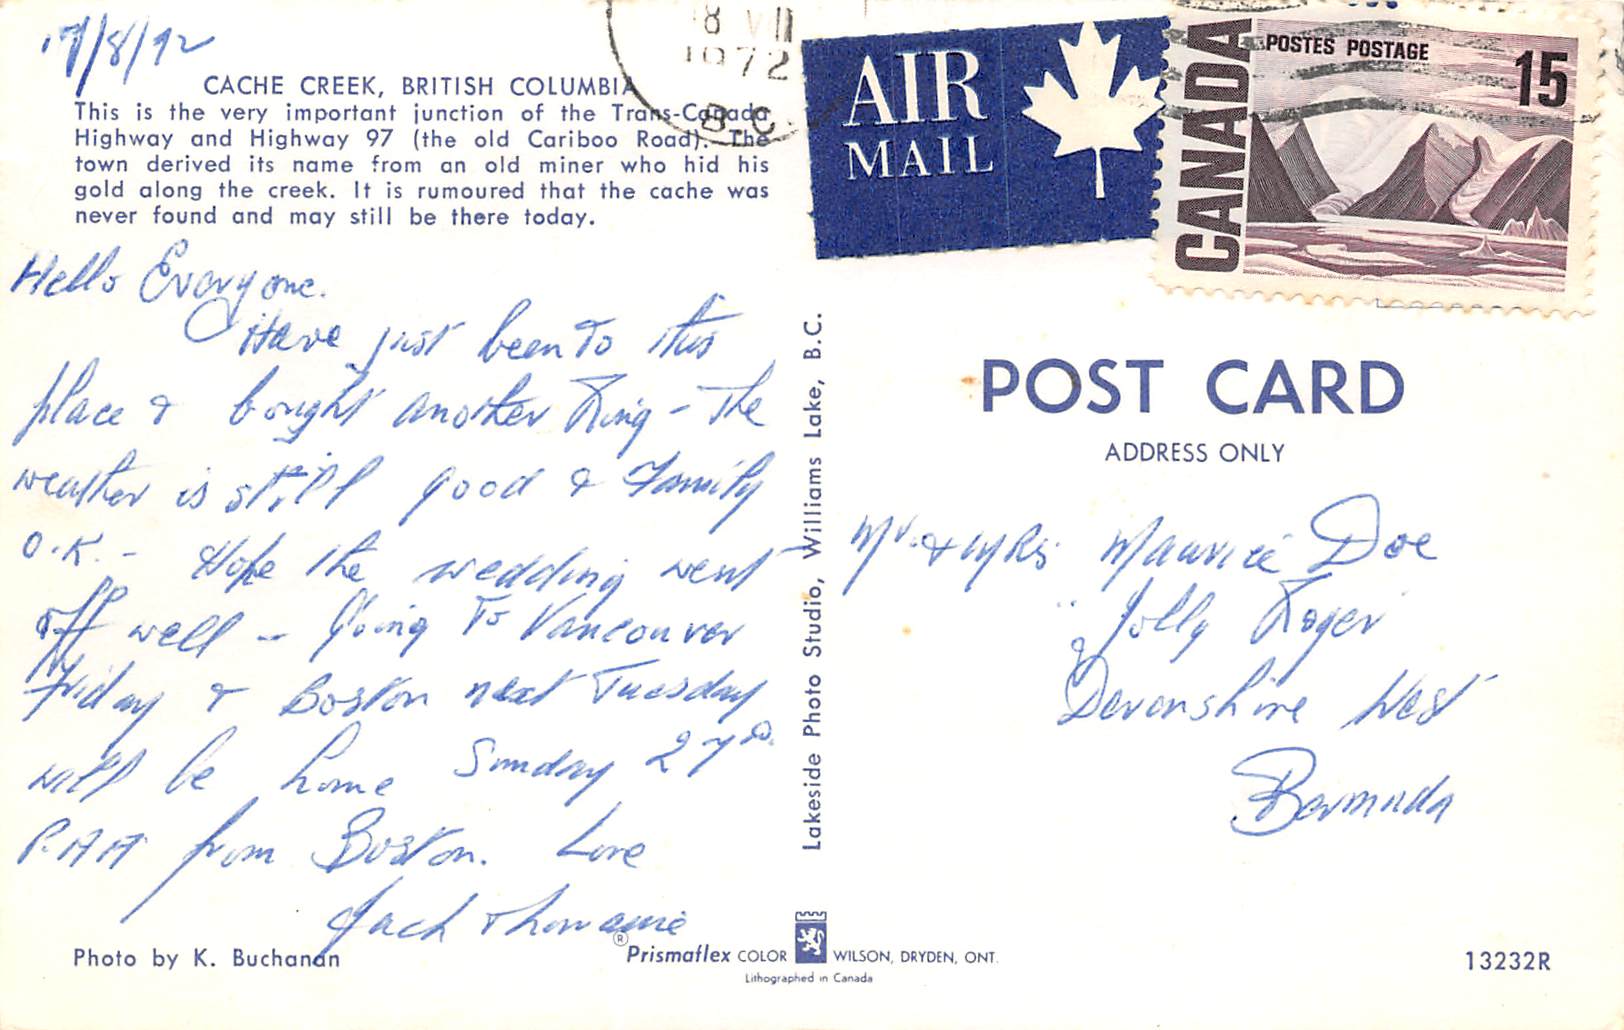 17/8/72
CACHE CREEK, BRITISH COLUMBIA
This is the very important junction of the Trans-Canada
Highway and Highway 97 (the old Cariboo Road). The
town derived its name from an old miner who hid his
gold along the creek. It is rumoured that the cache was
never found and may still be there today.
Hello Everyone.
Have just been to this
place & bought another Ring - The
weather is still good & Family
O.K. - Hope the wedding went
off well - Going To Vancouver
Friday & Boston next Tuesday
will be home Sunday 27th
P.A.A from Boston. Love
Jack
Photo by K. Buchanan
Lakeside Photo Studio, Williams Lake, B.C.
® Prismaflex COLOR WILSON, DRYDEN, ONT.
Lithographed in Canada
18 VII
1972
B C
AIR
MAIL
CANADA
POSTES POSTAGE
15
POST CARD
ADDRESS ONLY
Mr. & MRS Maurice Doe
"Jolly Roger"
Devonshire West
Bermuda
13232R